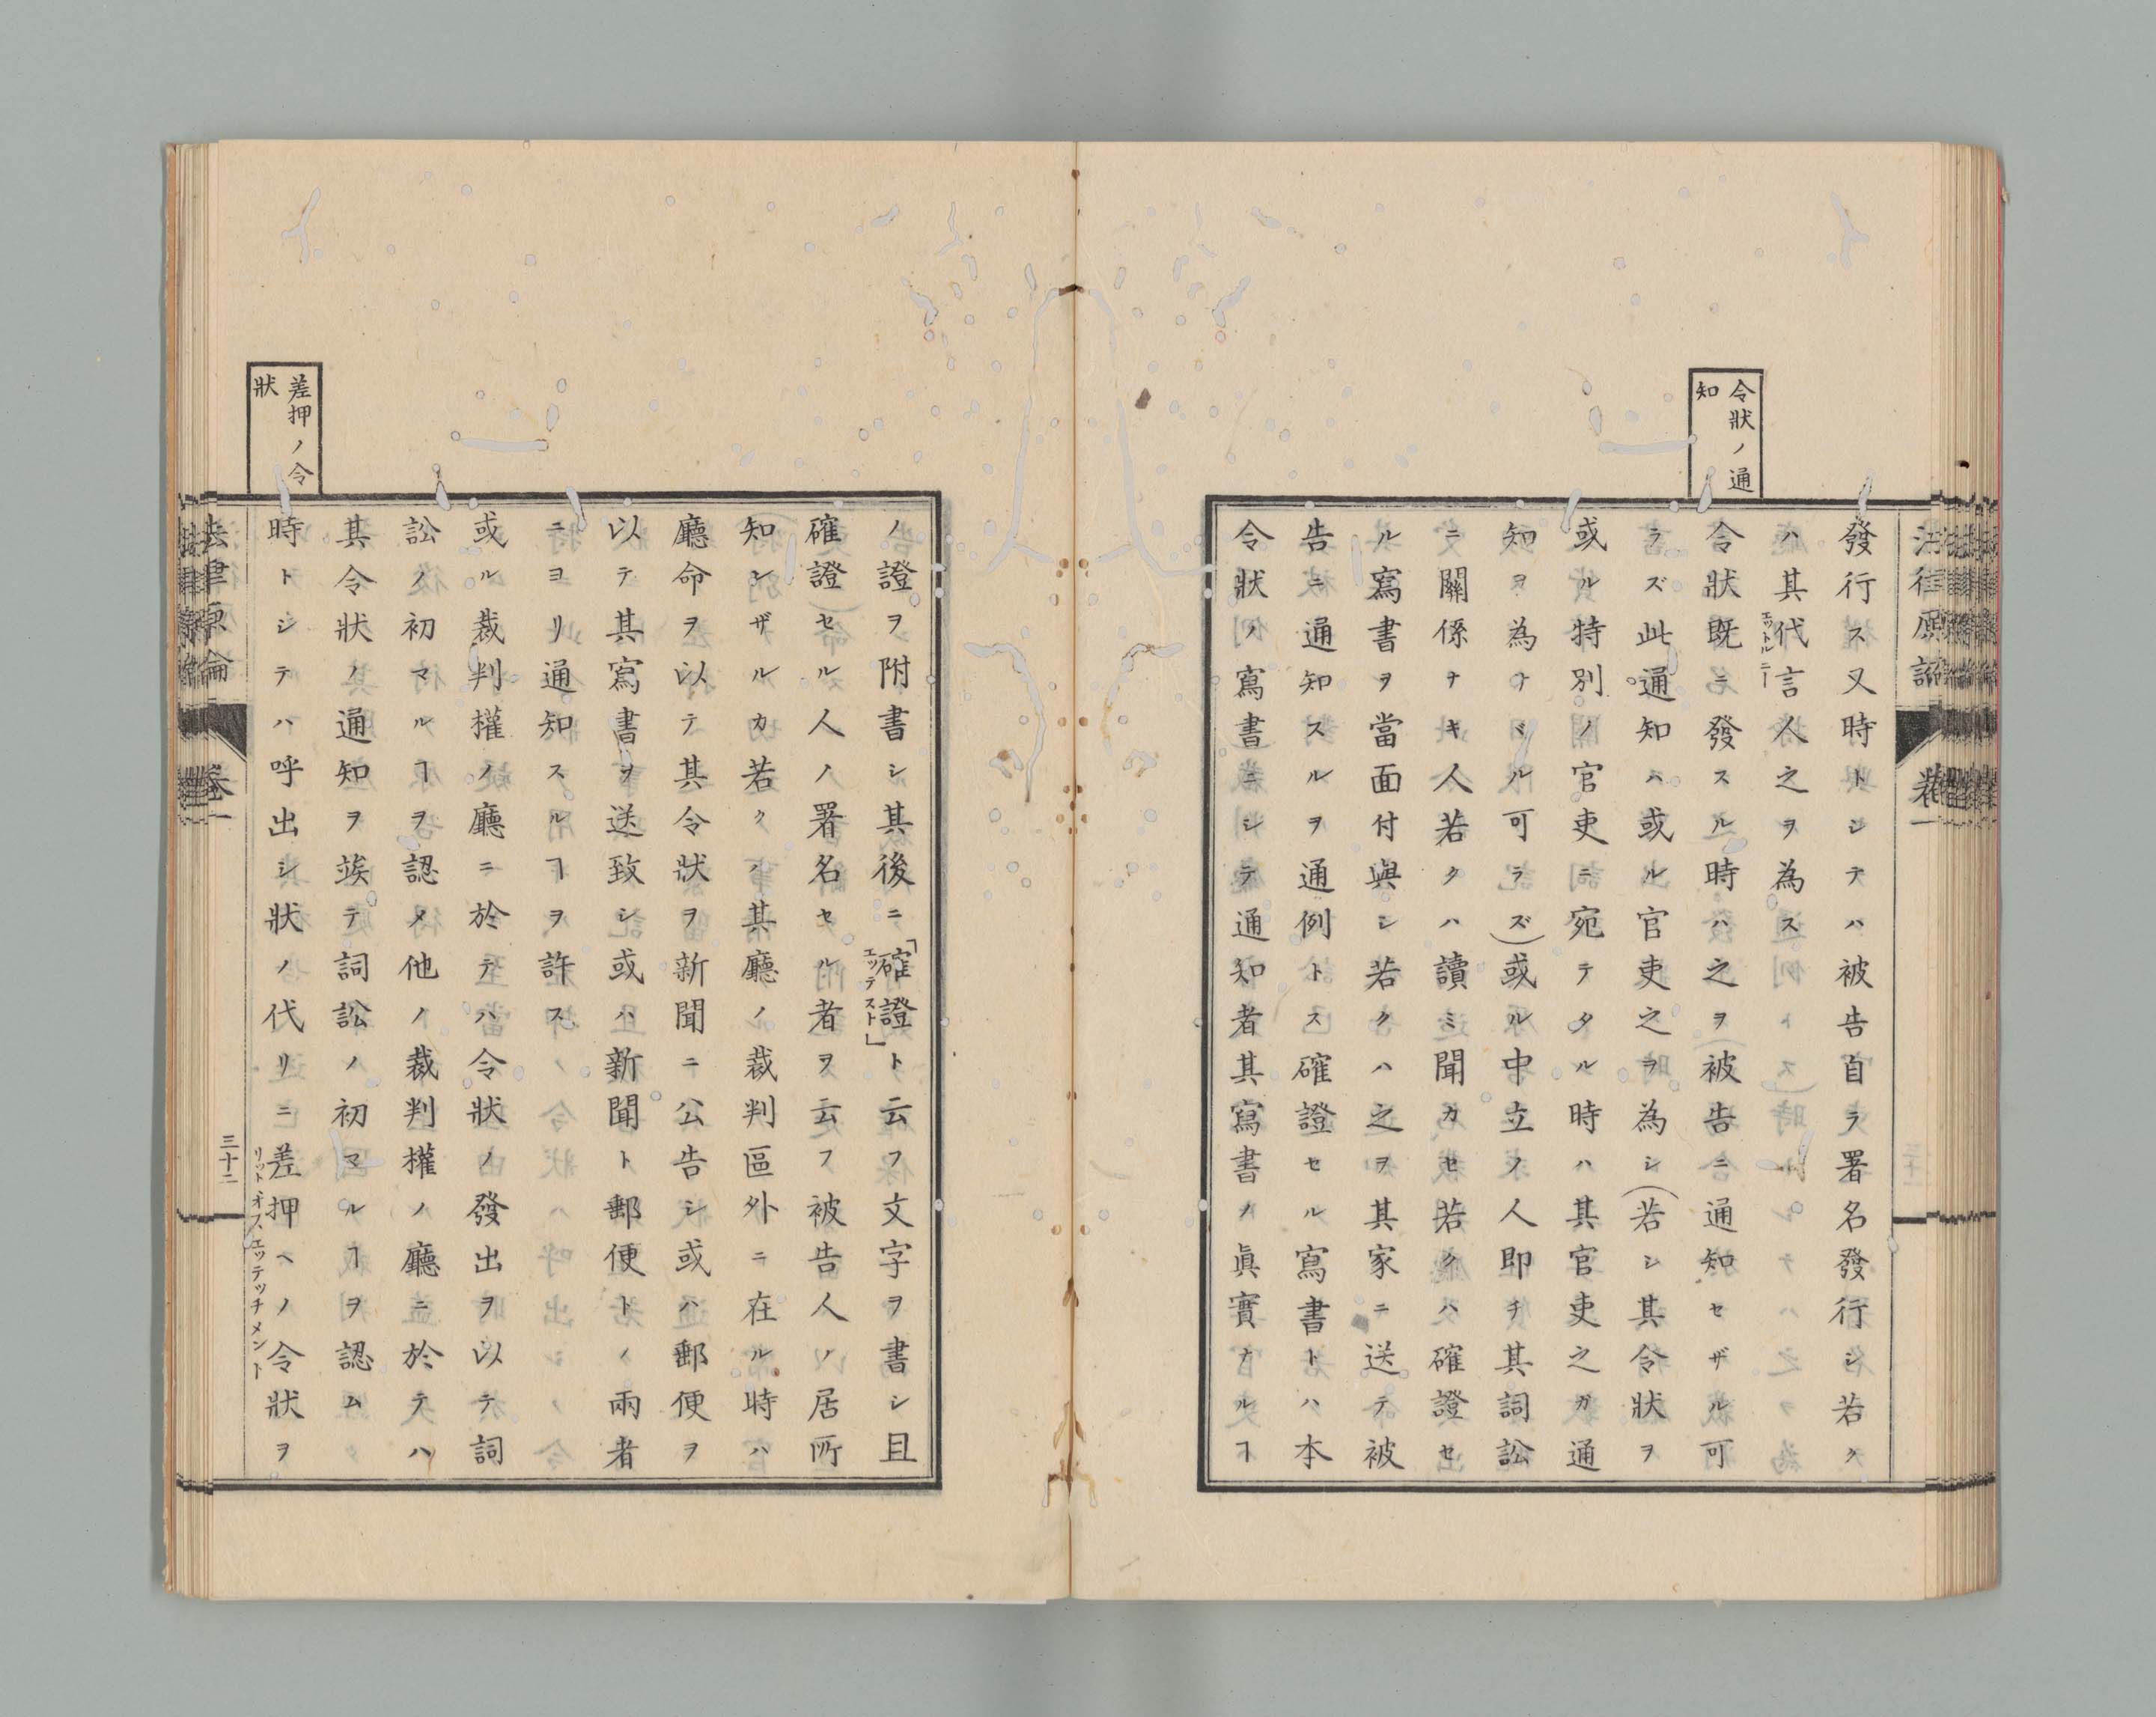 令狀ノ通
知
發行ス又時トシテハ被告自ラ署名發行シ若ク
ハ其代言人之ヲ為ス
エットルニー
令狀既ニ發スル時ハ之ヲ被告ニ通知セザル可
ラズ此通知ハ或ル官吏之ヲ為シ(若シ其令狀ヲ
或ル特別ノ官吏ニ宛テタル時ハ其官吏之ガ通
知ヲ為サヾル可ラズ)或ル中立ノ人即チ其詞訟
ニ關係ナキ人若クハ讀ミ聞カセ若クハ確證セ
ル寫書ヲ當面付與シ若クハ之ヲ其家ニ送テ被
告ニ通知スルヲ通例トス確證セル寫書トハ本
令狀ノ寫書ニシテ通知者其寫書ノ眞實ナルヿ
差押ノ令
狀
ノ證ヲ附書シ其後ニ「確證」ト云フ文字ヲ書シ且
エッテスト
確證セル人ノ署名セル者ヲ云フ被告人ノ居所
知レザルカ若クハ其廳ノ裁判區外ニ在ル時ハ
廳命ヲ以テ其令狀ヲ新聞ニ公告シ或ハ郵便ヲ
以テ其寫書ヲ送致シ或ハ新聞ト郵便トノ兩者
ニヨリ通知スルヿヲ許ス
或ル裁判權ノ廳ニ於テハ令狀ノ發出ヲ以テ詞
訟ノ初マルヿヲ認メ他ノ裁判權ノ廳ニ於テハ
其令狀ノ通知ヲ竢テ詞訟ノ初マルヿヲ認ム
時トシテハ呼出シ狀ノ代リニ差押ヘノ令狀ヲ
リットオフエッテッチメント
法律原論 卷一
三十二